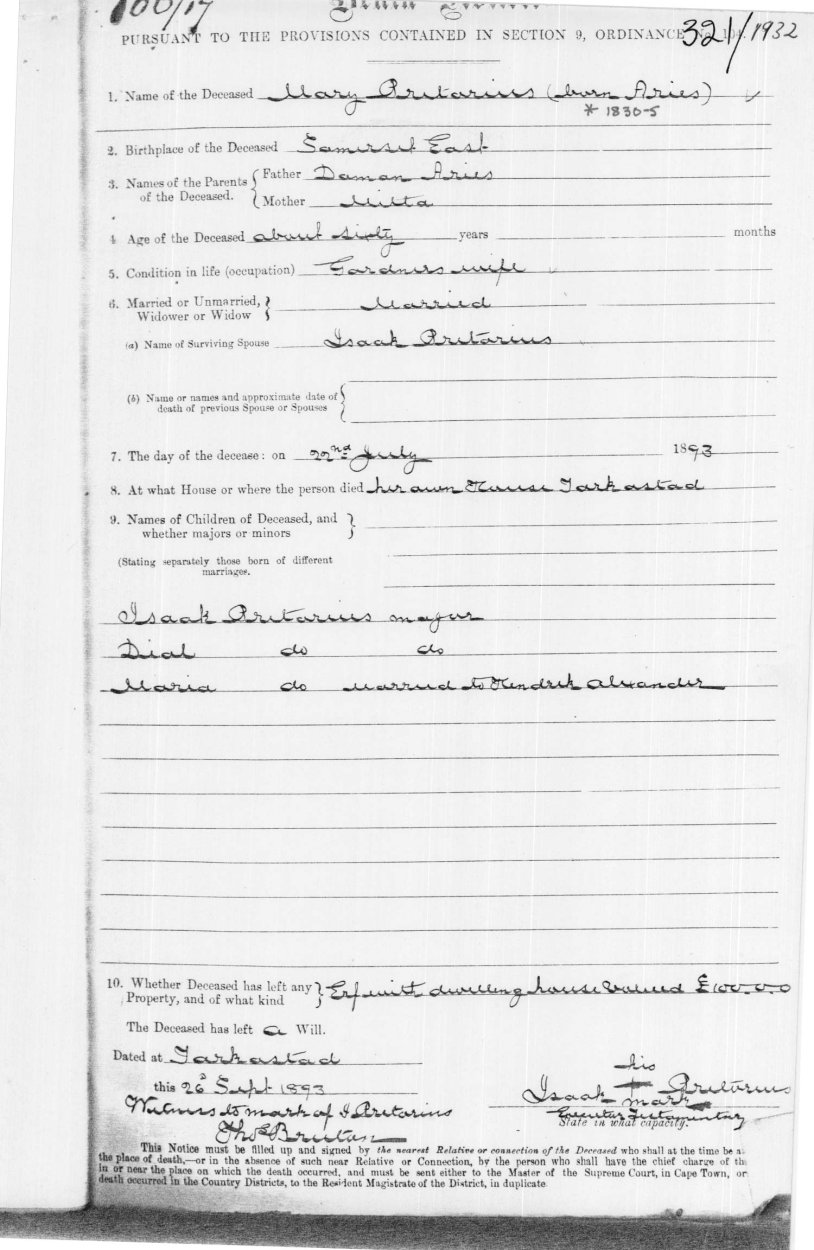 100/17
321/1932
PURSUANT TO THE PROVISIONS CONTAINED IN SECTION 9, ORDINANCE No. 104.
1. Name of the Deceased Mary Pretorius (born Aries) ✓
* 1830-5
2. Birthplace of the Deceased Somerset East
3. Names of the Parents of the Deceased. { Father Daman Aries
Mother Milta
4 Age of the Deceased about sixty years months
5. Condition in life (occupation) Gardners wife
6. Married or Unmarried, Widower or Widow } Married
(a) Name of Surviving Spouse Isaak Pretorius
(b) Name or names and approximate date of death of previous Spouse or Spouses {
7. The day of the decease: on 22nd July 1893
8. At what House or where the person died her own House Tarkastad
9. Names of Children of Deceased, and whether majors or minors }
(Stating separately those born of different marriages.
Isaak Pretorius major
Dial do do
Maria do married to Hendrik Alexander
10. Whether Deceased has left any Property, and of what kind } Erf with dwelling house valued £100.0.0
The Deceased has left a Will.
Dated at Tarkastad
this 26 Sept 1893
his
Isaak + Pretorius
mark
Witness to mark of I Pretorius
Executor Testamentary
State in what capacity.
Thos Bruton
This Notice must be filled up and signed by the nearest Relative or connection of the Deceased who shall at the time be a
the place of death,—or in the absence of such near Relative or Connection, by the person who shall have the chief charge of th
in or near the place on which the death occurred, and must be sent either to the Master of the Supreme Court, in Cape Town, or
death occurred in the Country Districts, to the Resident Magistrate of the District, in duplicate